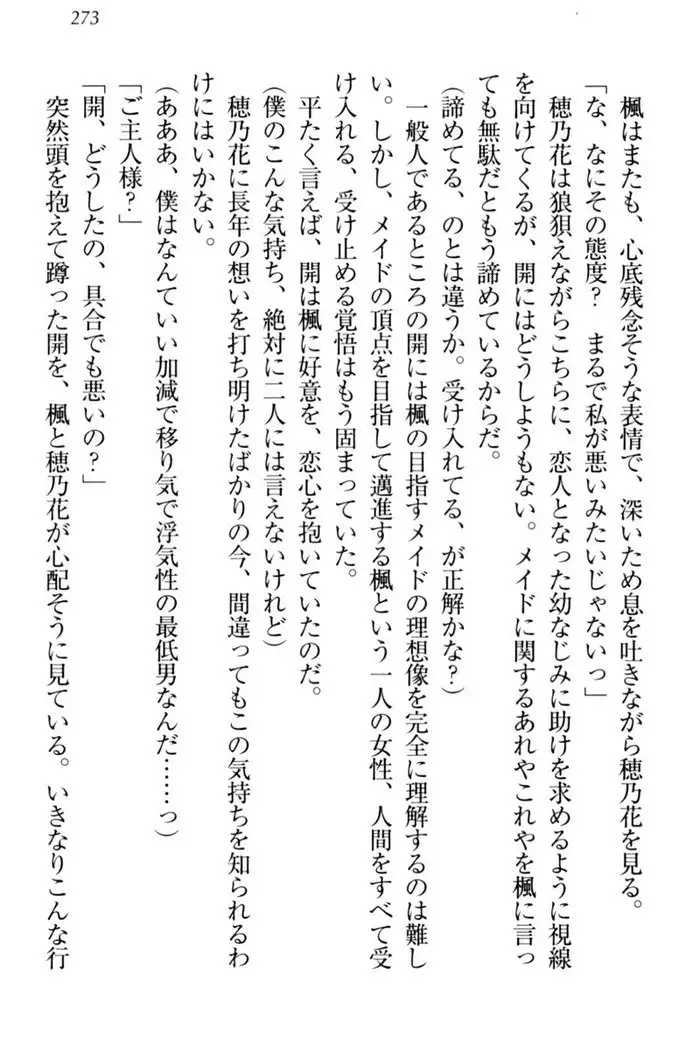 273
楓はまたも、心底残念そうな表情で、深いため息を吐きながら穂乃花を見る。
「な、なにその態度？　まるで私が悪いみたいじゃないっ」
穂乃花は狼狽えながらこちらに、恋人となった幼なじみに助けを求めるように視線
を向けてくるが、開にはどうしようもない。メイドに関するあれやこれやを楓に言っ
ても無駄だともう諦めているからだ。
（諦めてる、のとは違うか。受け入れてる、が正解かな？）
一般人であるところの開には楓の目指すメイドの理想像を完全に理解するのは難し
い。しかし、メイドの頂点を目指して邁進する楓という一人の女性、人間をすべて受
け入れる、受け止める覚悟はもう固まっていた。
平たく言えば、開は楓に好意を、恋心を抱いていたのだ。
（僕のこんな気持ち、絶対に二人には言えないけれど）
穂乃花に長年の想いを打ち明けたばかりの今、間違ってもこの気持ちを知られるわ
けにはいかない。
（あああ、僕はなんていい加減で移り気で浮気性の最低男なんだ……っ）
「ご主人様？」
「開、どうしたの、具合でも悪いの？」
突然頭を抱えて蹲った開を、楓と穂乃花が心配そうに見ている。いきなりこんな行